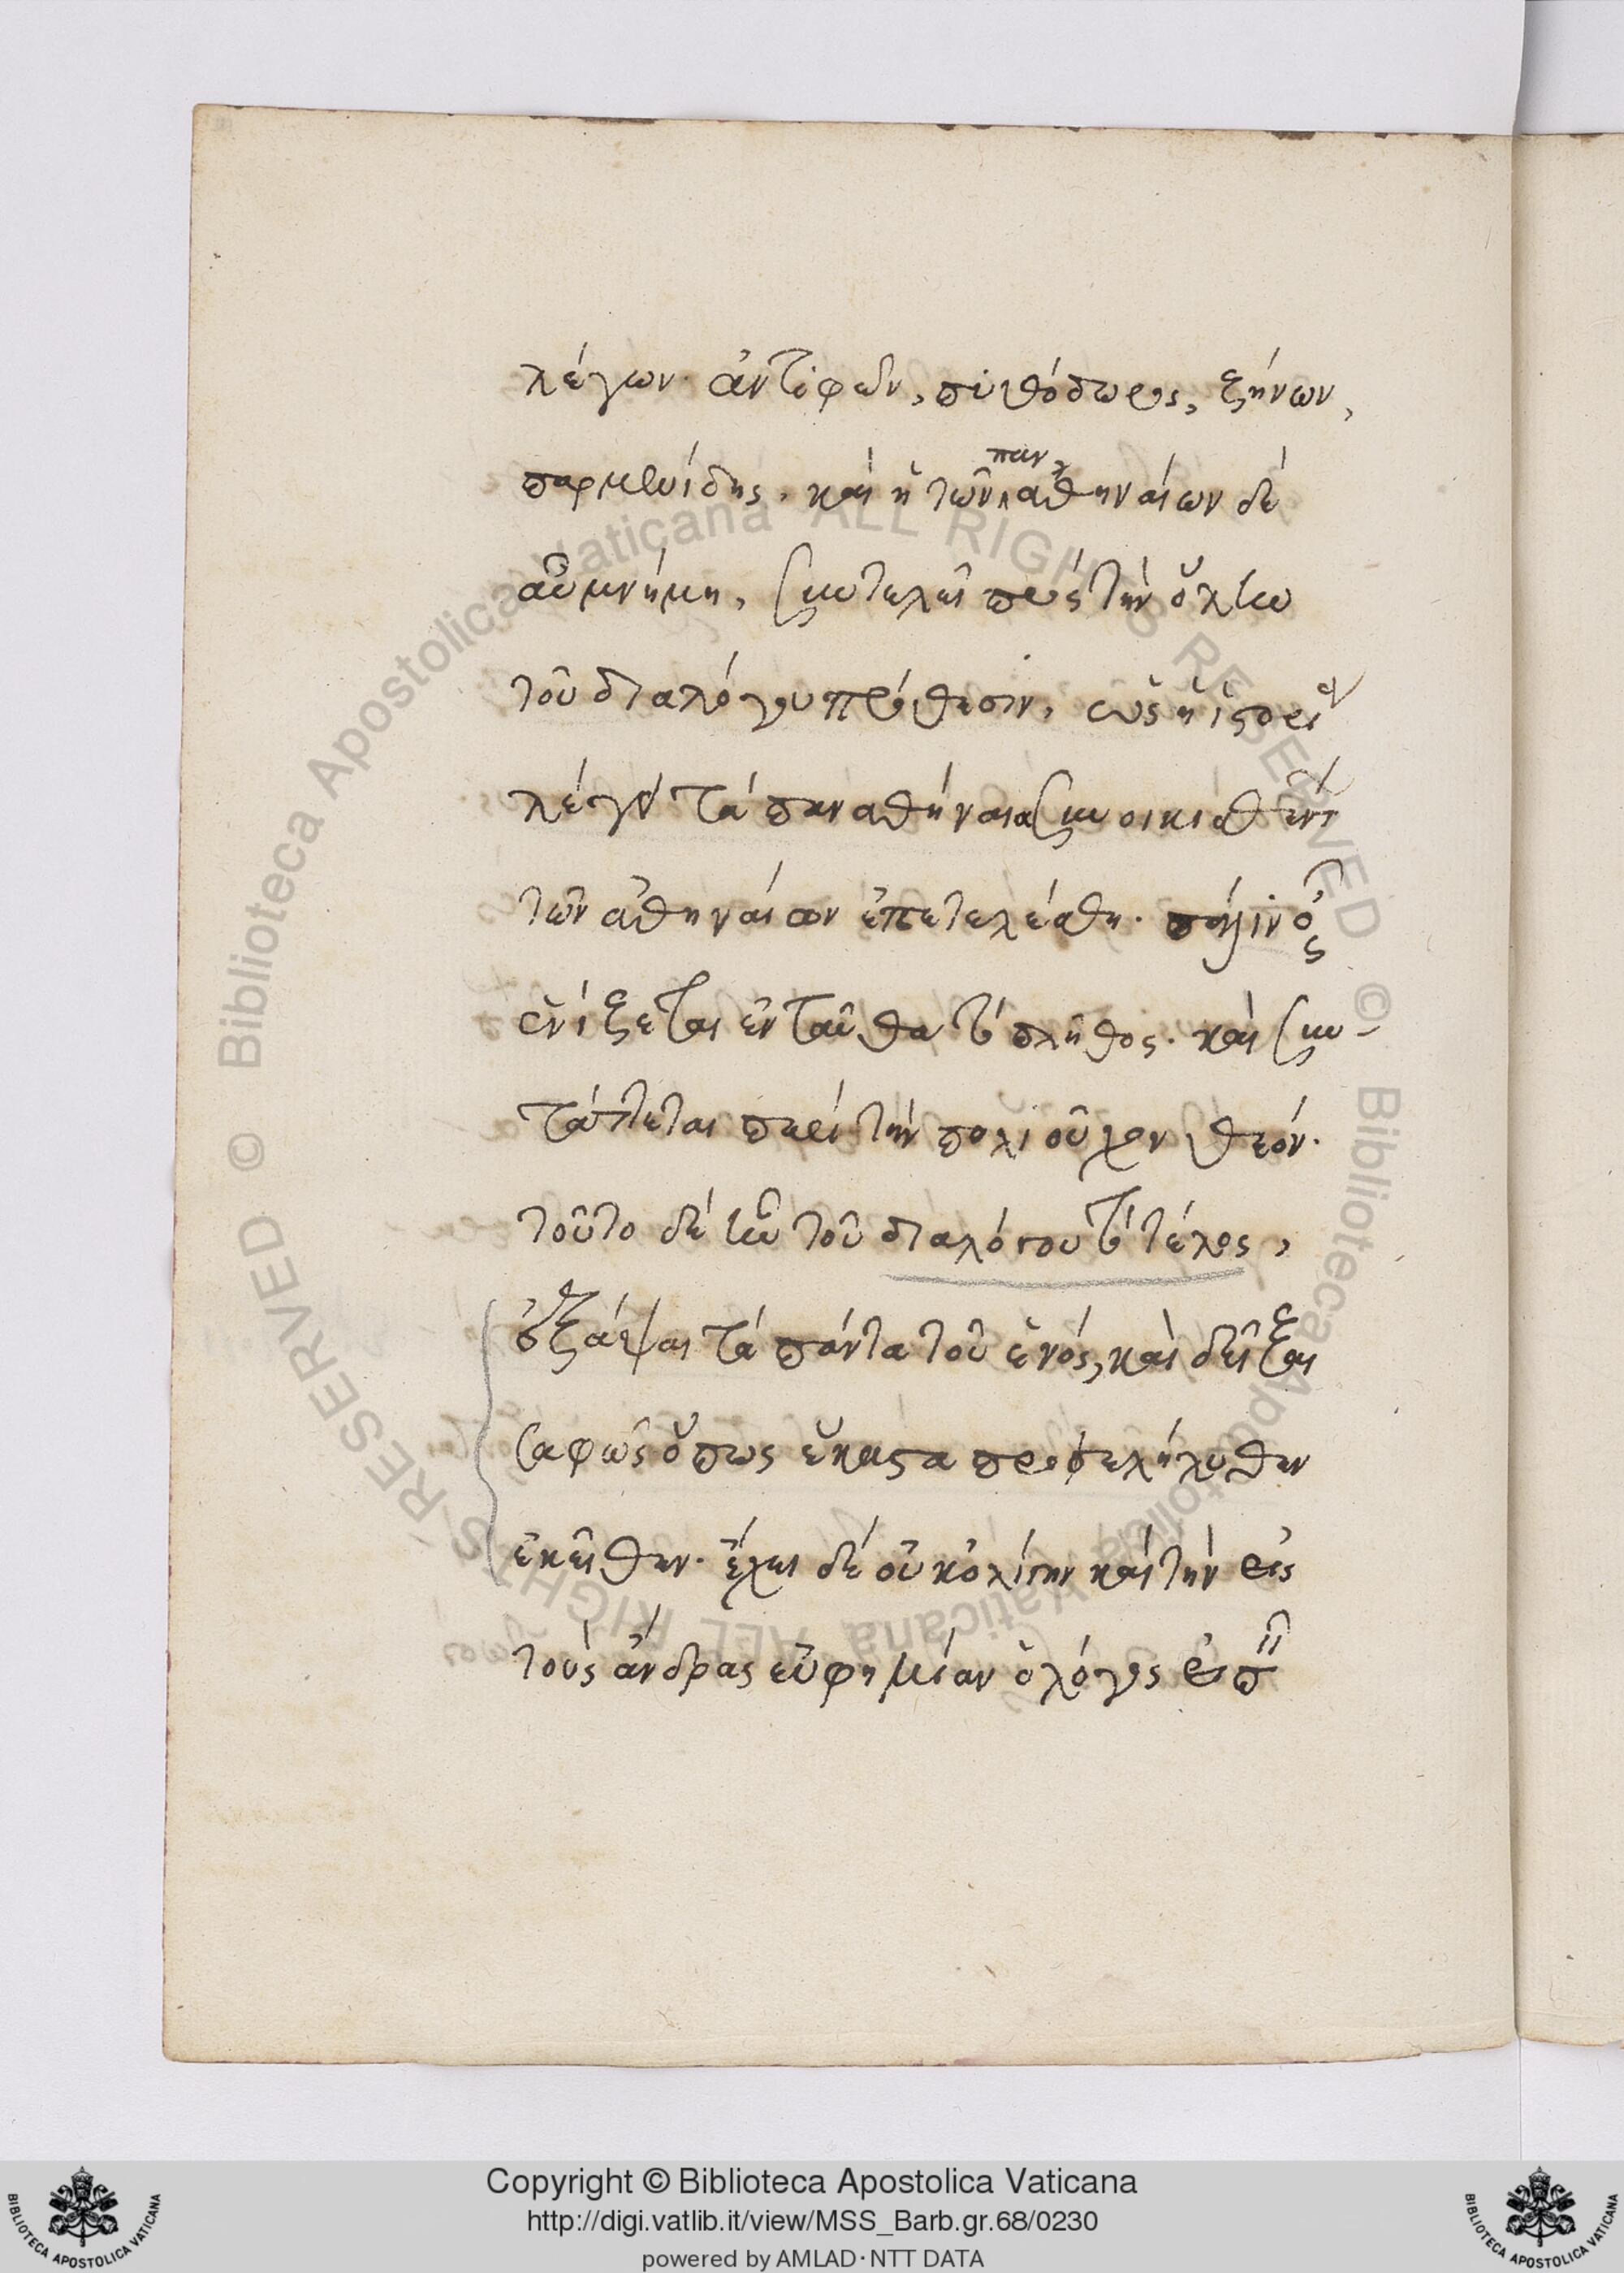 λέγων. ἀντιφῶν, πυθόδωρος, ζήνων,
παρμενίδης. καὶ ἡ τῶν παναθηναίων δὲ
αὖ μνήμη, συντελεῖ πρὸς τὴν ὅλην
τοῦ διαλόγου πρόθεσιν, ὡς ἡ ἱστορία
λέγει τὰ παναθήναια συνοικισθέντων
τῶν ἀθηναίων ἐπετελέσθη. πάλιν οὖν
ἑνίζεται ἐνταῦθα τὸ πλῆθος. καὶ συν-
τάττεται περὶ τὴν πολιοῦχον θεόν.
τοῦτο δὲ ἦν τοῦ διαλόγου τὸ τέλος,
ἐξάψαι τὰ πάντα τοῦ ἑνός, καὶ δεῖξαι
σαφῶς ὅπως ἕκαστα προσεληλύθεν
ἐκεῖθεν. ἔχει δὲ οὐκ ὀλίγην καὶ τὴν εἰς
τοὺς ἄνδρας εὐφημίαν ὁ λόγος
Copyright © Biblioteca Apostolica Vaticana
http://digi.vatlib.it/view/MSS_Barb.gr.68/0230
powered by AMLAD·NTT DATA
BIBLIOTECA APOSTOLICA VATICANA
BIBLIOTECA APOSTOLICA VATICANA
© Biblioteca Apostolica Vaticana ALL RIGHTS RESERVED © Biblioteca Apostolica Vaticana ALL RIGHTS RESERVED